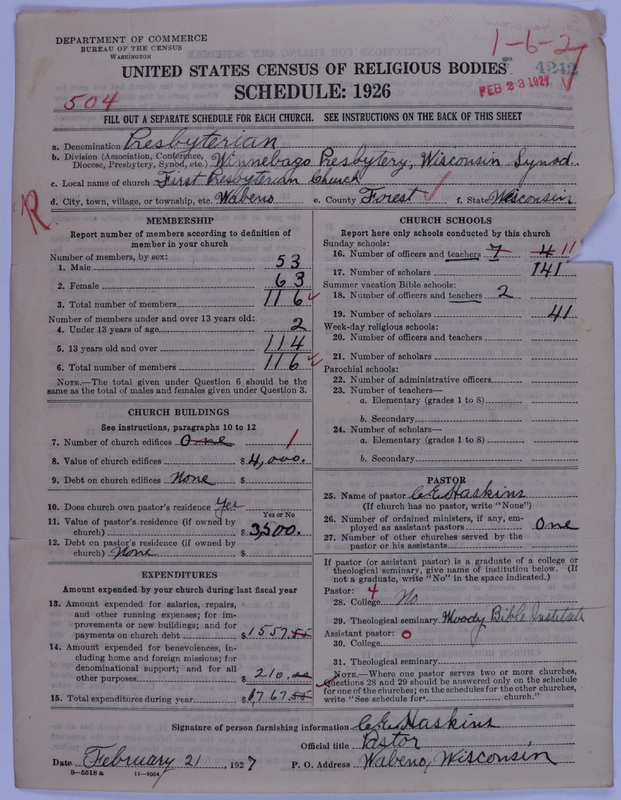 DEPARTMENT OF COMMERCE
BUREAU OF THE CENSUS
WASHINGTON
1-6-27
4242
FEB 23 1927
UNITED STATES CENSUS OF RELIGIOUS BODIES
SCHEDULE: 1926
504
FILL OUT A SEPARATE SCHEDULE FOR EACH CHURCH. SEE INSTRUCTIONS ON THE BACK OF THIS SHEET
a. Denomination Presbyterian
b. Division (Association, Conference, Diocese, Presbytery, Synod, etc.) Winnebago Presbytery, Wisconsin Synod.
c. Local name of church First Presbyterian Church
d. City, town, village, or township, etc. Wabeno e. County Forest f. State Wisconsin
R
MEMBERSHIP
Report number of members according to definition of
member in your church
Number of members, by sex:
1. Male 53
2. Female 63
3. Total number of members 116
Number of members under and over 13 years old:
4. Under 13 years of age 2
5. 13 years old and over 114
6. Total number of members 116
NOTE.—The total given under Question 6 should be the
same as the total of males and females given under Question 3.
CHURCH BUILDINGS
See instructions, paragraphs 10 to 12
7. Number of church edifices One 1
8. Value of church edifices $4,000.
9. Debt on church edifices None $
10. Does church own pastor's residence? Yes
Yes or No
11. Value of pastor's residence (if owned by
church) $3,500.
12. Debt on pastor's residence (if owned by
church) None $
EXPENDITURES
Amount expended by your church during last fiscal year
13. Amount expended for salaries, repairs,
and other running expenses; for im-
provements or new buildings; and for
payments on church debt $1557.55
14. Amount expended for benevolences, in-
cluding home and foreign missions; for
denominational support; and for all
other purposes $210.00
15. Total expenditures during year $1767.55
CHURCH SCHOOLS
Report here only schools conducted by this church
Sunday schools:
16. Number of officers and teachers 7 4 11
17. Number of scholars 141
Summer vacation Bible schools:
18. Number of officers and teachers 2
19. Number of scholars 41
Week-day religious schools:
20. Number of officers and teachers
21. Number of scholars
Parochial schools:
22. Number of administrative officers
23. Number of teachers—
a. Elementary (grades 1 to 8)
b. Secondary
24. Number of scholars—
a. Elementary (grades 1 to 8)
b. Secondary
PASTOR
25. Name of pastor C. E. Haskins
(If church has no pastor, write "None")
26. Number of ordained ministers, if any, em-
ployed as assistant pastors One
27. Number of other churches served by the
pastor or his assistants
If pastor (or assistant pastor) is a graduate of a college or
theological seminary, give name of institution below. (If
not a graduate, write "No" in the space indicated.)
Pastor: 4
28. College No
29. Theological seminary Moody Bible Institute
Assistant pastor: 0
30. College
31. Theological seminary
NOTE.—Where one pastor serves two or more churches,
Questions 28 and 29 should be answered only on the schedule
for one of the churches; on the schedules for the other churches,
write "See schedule for church."
Signature of person furnishing information C. E. Haskins
Official title Pastor
Date February 21, 1927 P. O. Address Wabeno, Wisconsin
8-5518 a 11-9054